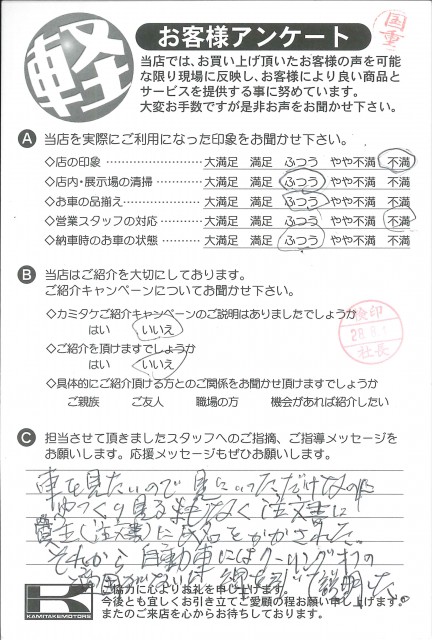 軽
お客様アンケート
国重
当店では、お買い上げ頂いたお客様の声を可能
な限り現場に反映し、お客様により良い商品と
サービスを提供する事に努めています。
大変お手数ですが是非お声をお聞かせ下さい。
A 当店を実際にご利用になった印象をお聞かせ下さい。
◇店の印象 大満足 満足 ふつう やや不満 不満
◇店内・展示場の清掃 大満足 満足 ふつう やや不満 不満
◇お車の品揃え 大満足 満足 ふつう やや不満 不満
◇営業スタッフの対応 大満足 満足 ふつう やや不満 不満
◇納車時のお車の状態 大満足 満足 ふつう やや不満 不満
B 当店はご紹介を大切にしております。
ご紹介キャンペーンについてお聞かせ下さい。
◇カミタケご紹介キャンペーンのご説明はありましたでしょうか
はい いいえ
検印
28.
社長
◇ご紹介を頂けますでしょうか
はい いいえ
◇具体的にご紹介頂ける方とのご関係をお聞かせ頂けますでしょうか
ご親族 ご友人 職場の方 機会があれば紹介したい
C 担当させて頂きましたスタッフへのご指摘、ご指導メッセージを
お願いします。応援メッセージもぜひお願いします。
車を見たいので見にいっただけなのに
ゆっくり見る まもなく注文書に
(注文書)に氏名をかかされた。
それから自動車にはクーリングオフの
がないと 線を引いて説明した。
K
KAMITAKEMOTORS
ご協力に心よりお礼を申し上げます。
今後とも宜しくお引き立てご愛顧の程お願い申し上げます。
またのご来店を心からお待ちしております。